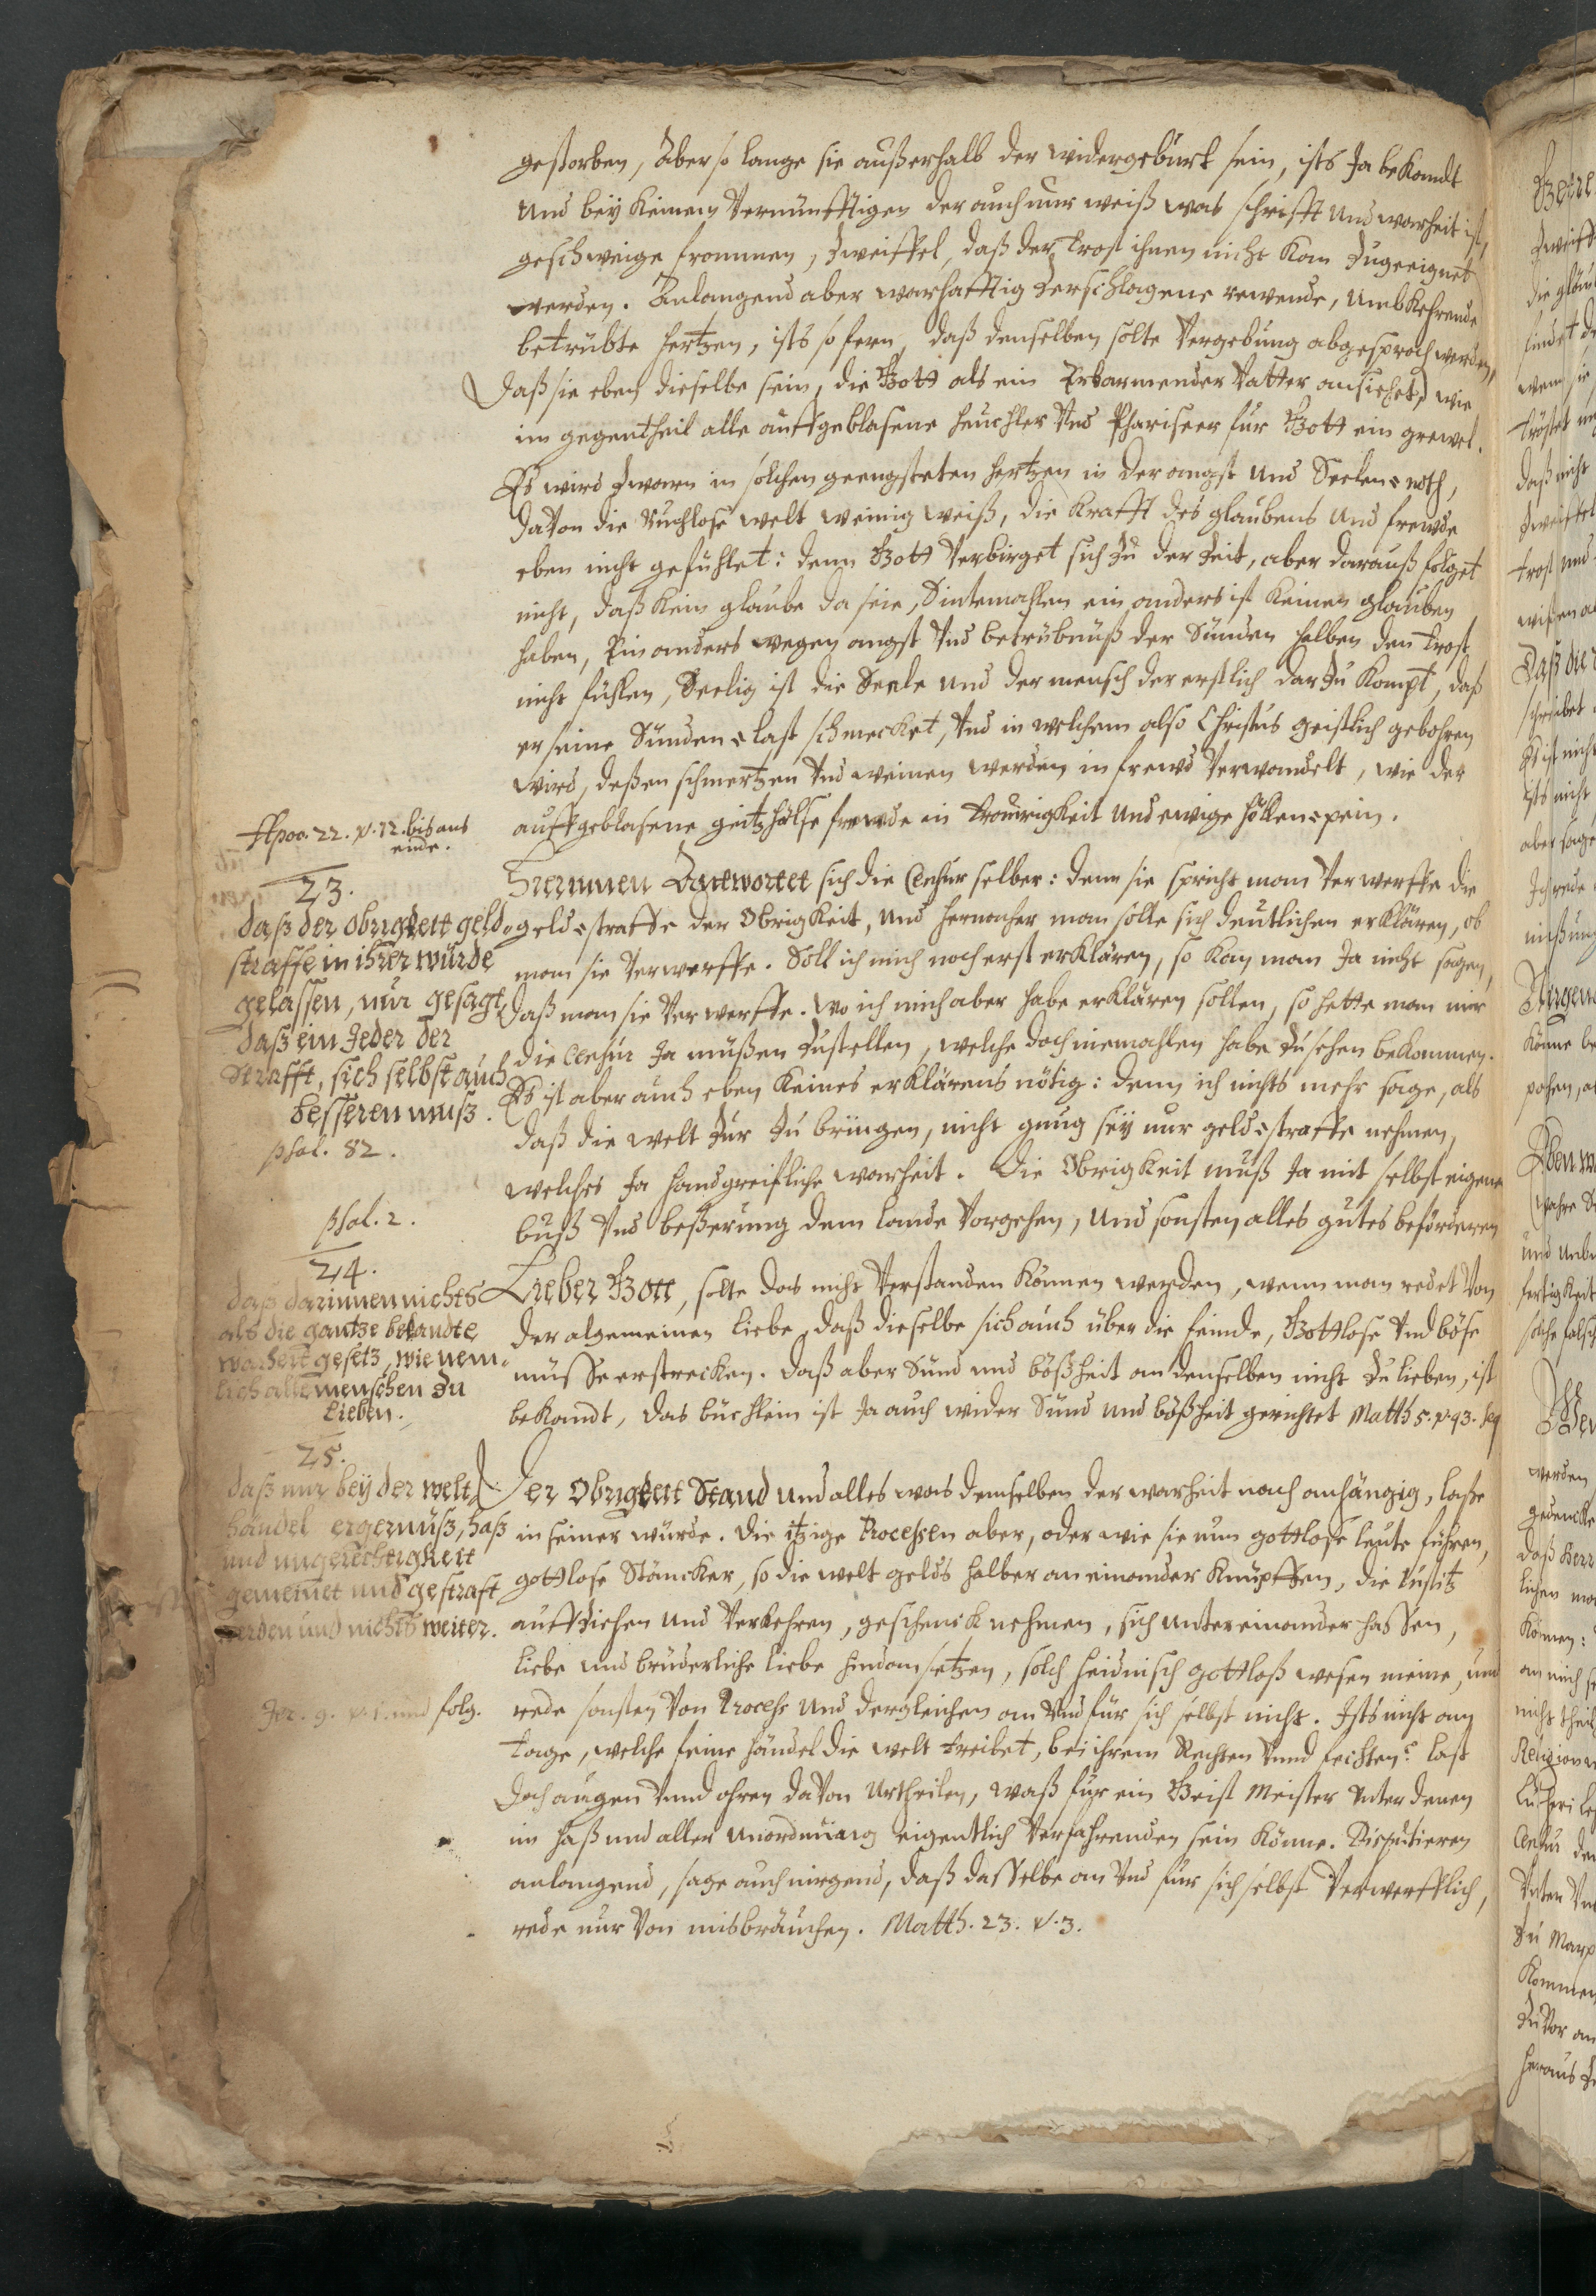 gestorben, Aber so lange sie außerhalb der widergeburt sein, ists Ja bekandt
und bey keinem vernünfftigen der auch nur weiß was schrifft und warheit ist,
geschweige frommen, Zweiffel, daß der trost ihnen nicht kan Zugeeignet
werden. Anlangend aber warhafftig Zerschlagene rewende, umbkehrende
betrübte hertzen, ists so fern, daß denselben solte vergebung abgesproch werden,
Daß sie eben dieselbe sein, die Gott als ein Erbarmender vatter ansichet, wie
im gegentheil alle auffgeblasene heuchler vnd Phariseer für Gott ein grewel.
Es wird Zwarn in solchen geengsteten hertzen in der angst und Seelen=noth,
davon die Ruchlose welt weinig weiß, die krafft des glaubens und frewde
eben nicht gefühlet: denn Gott verbirget sich Zu der Zeit, aber darauß folget
nicht, daß kein glaube da seie, Sintemahlen ein anders ist keinen glauben
haben, Ein anders wegen angst vnd betrübnüß der Sünden halben den trost
nicht fühlen, Seelig ist die Seele und der mensch der erstlich dar Zu kompt, daß
er seine Sünden=last schmecket, vnd in welchem also Christus geistlich gebohren
wird, deßen schmertzen vnd weinen werden in frewd verwandelt, wie der
auffgeblasene geitzhälse frewde in trawrigkeit und ewige höllen=pein.
Apoc. 22. v. 12. bis ans
ende.
23.
daß der Obrigkeit geld=
straffe in ihrer würde
gelassen, nur gesagt
daß ein Jeder der
Strafft, sich selbst auch
besseren muß.
psal. 82.
psal. 2.
Hierinnen Antwortet sich die Censur selber: denn sie spricht man verwerffe die
geld=straffe der Obrigkeit, und hernacher man solle sich deutlichen erklären, ob
man sie verwerffe. Soll ich mich noch erst erklären, so kan man Ja nicht sagen,
Daß man sie verwerffe. wo ich mich aber habe erklären sollen, so hette man mir
die Censur Ja müßen Zustellen, welche doch niemahlen habe Zu sehen bekommen.
Es ist aber auch eben keines erklärens nötig: denn ich nichts mehr sage, als
daß die welt Zur Zu bringen, nicht gnug seÿ nur geld=straffe nehmen,
welches Ja handgreifliche warheit. Die Obrigkeit muß Ja mit selbst eigener
buß vnd beßerung dem lande vorgehen, und sonsten alles gutes beförderen
24.
daß darinnen nichts
als die gantze bekandte
warheit gesetz, wie nem=
lich alle menschen Zu
Lieben.
Lieber Gott, solte das nicht verstanden können werden, wenn man redet von
der algemeinen liebe, daß dieselbe sich auch über die feinde, Gottlose vnd böse
müsse erstrecken. daß aber Sünd und bößheit an denselben nicht Zu lieben, ist
bekandt, das büchlein ist Ja auch wider Sünd und bößheit gerichtet Matth 5. v. 43. seq
25.
daß nur beÿ der welt
händel ergernüß, haß
und ungerechtigkeit
gemeinet und gestraft
werden und nichts weiter.
Jer. 9. v. 1. und folg.
Der Obrigkeit Stand und alles was demselben der warheit nach anhängig, laße
in seiner würde. Die itzige Processen aber, oder wie sie nun gottlose leute führen,
gottlose Stäncker, so die welt gelds halber an einander knüpffen, die Justitz
auffziehen und verkehren, geschenck nehmen, sich untereinander hassen,
liebe und brüderliche liebe hindansetzen, solch heidnisch gottloß wesen meine, und
rede sonsten von Process und dergleichen an vnd für sich selbst nicht. Ists nicht am
tage, welche feine händel die welt treibet, bei ihrem Rechten vnnd fechten? last
doch augen vnnd ohren davon Urtheilen, waß für ein Geist Meister unter denen
im haß und aller unordnung eigentlich verfahrenden sein könne. Disputieren
anlangend, sage auch nirgend, daß dasselbe an vnd für sich selbst verwerfflich,
rede nur von misbräuchen. Matth. 23. v. 3.